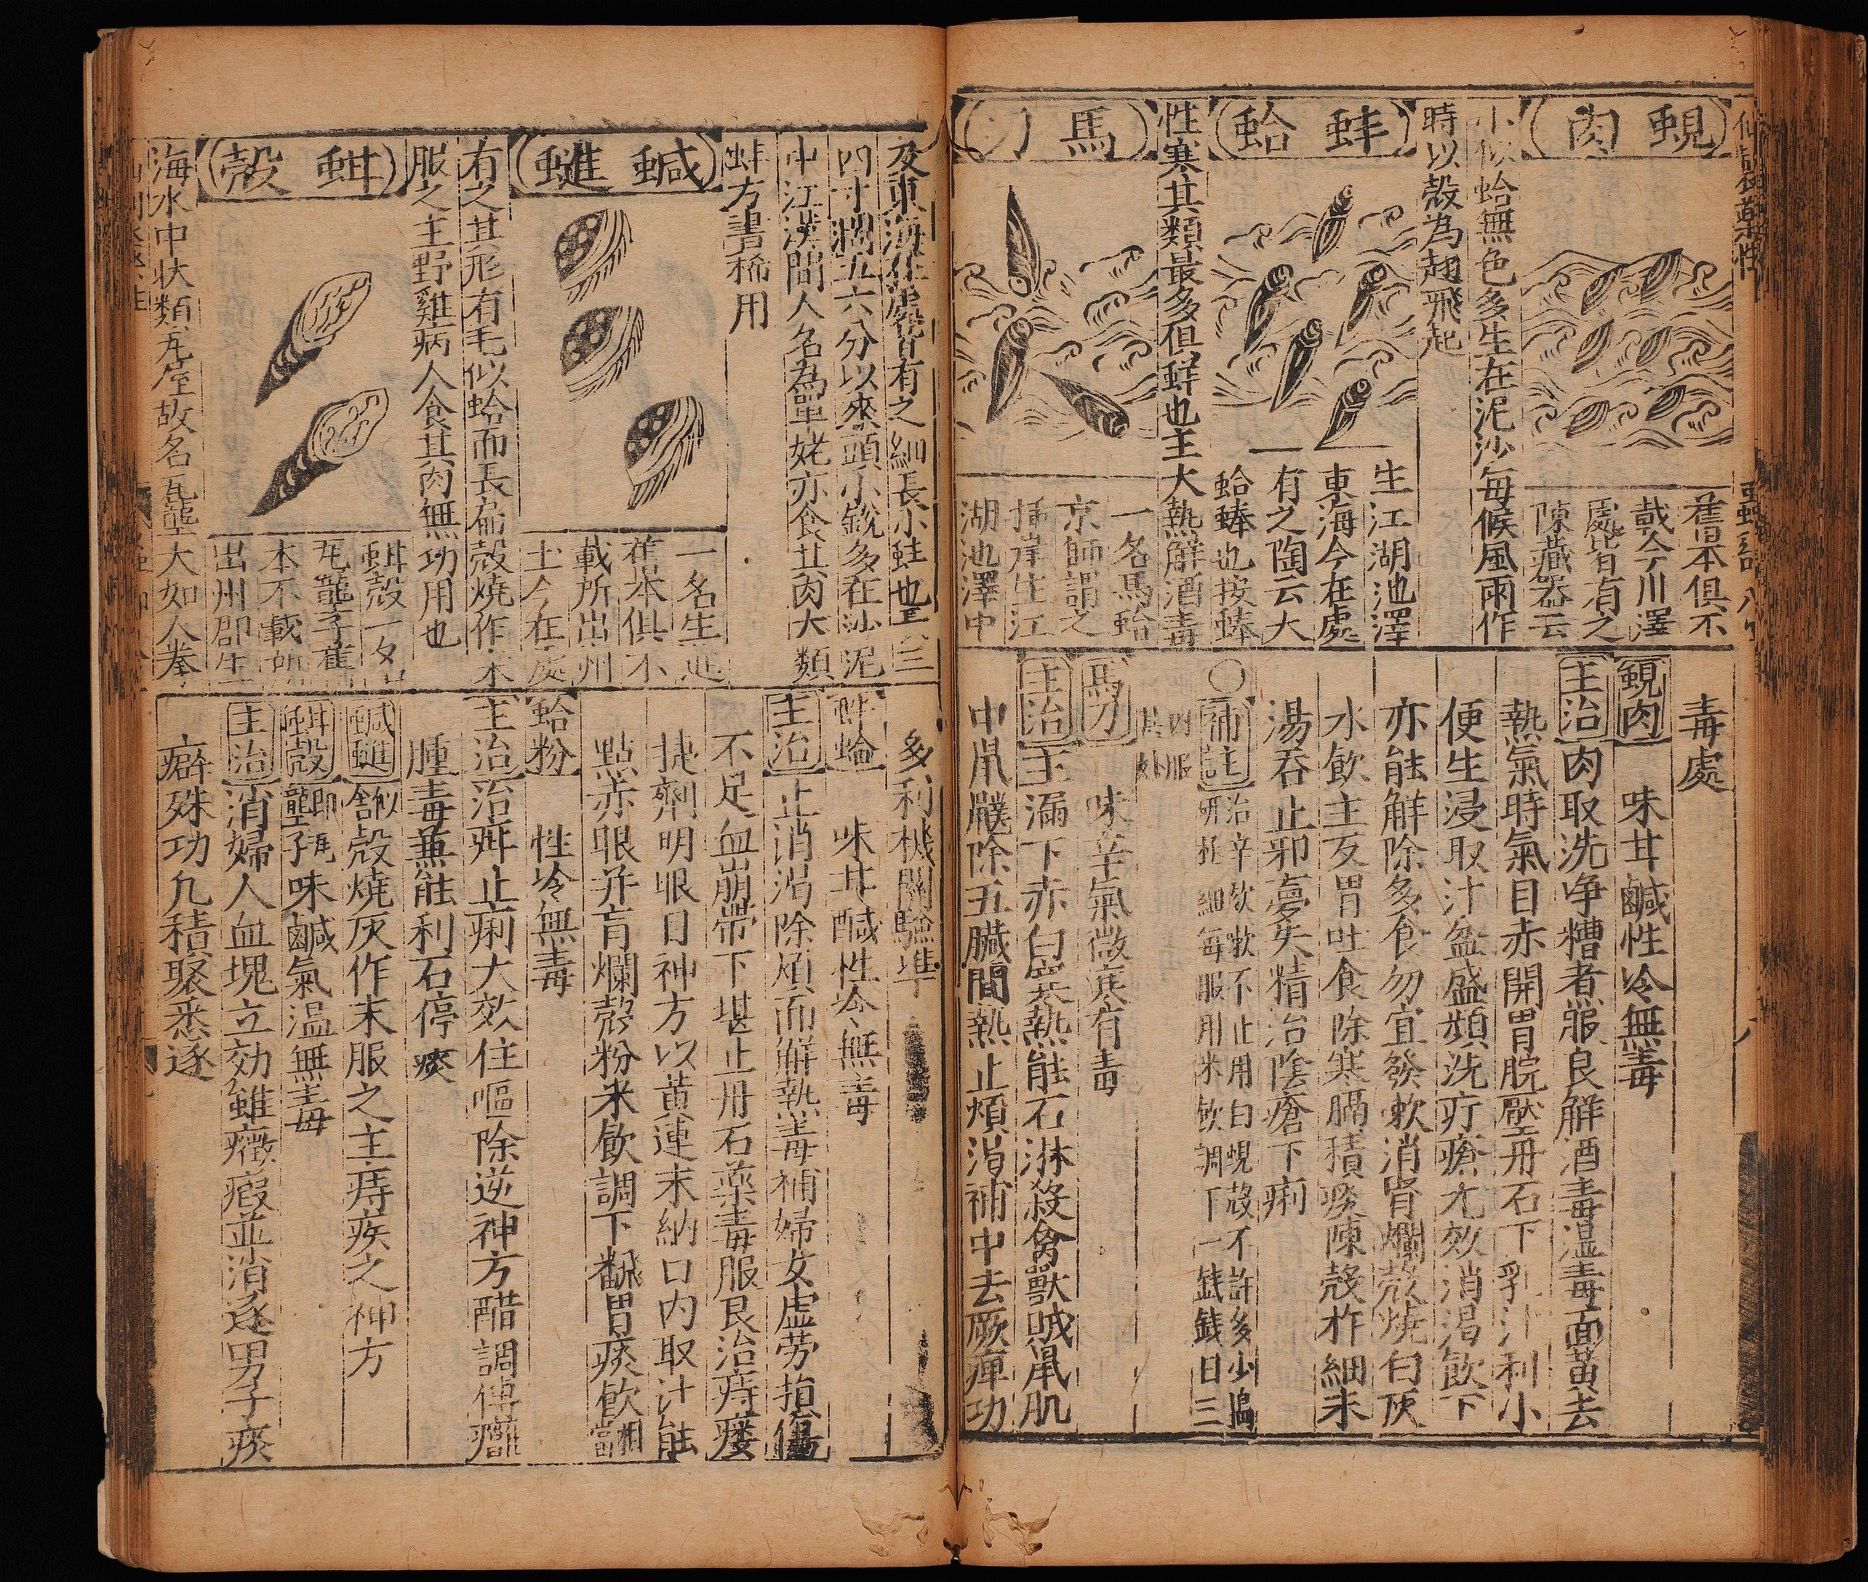 蜆肉
舊本俱不
載今川澤
處皆有之
陳藏器云
小似蛤無色多生在泥沙每候風雨作
時以殼為翅飛起
蚌蛤
生江湖池澤
東海今在處
有之陶云大
蛤蜯也按蜯
性寒其類最多但鮮也主大熱解酒毒
馬刀
一名馬蛤
京師謂之
插岸生江
湖池澤中
毒處
蜆肉 味甘鹹性冷無毒
主治 肉取洗净糟煮服良解酒毒濕毒面黃去
熱氣時氣目赤開胃脘壓丹石下乳汁利小
便生浸取汁盆盛頻洗疔瘡尤效消渴飲下
亦能解除多食勿宜發軟消胃爛殼燒白灰
水飲主反胃吐食除寒膈積痰陳殼柞細末
湯吞止邪夢失精治陰瘡下痢
○補註 治辛欬嗽不止用白蜆殼不許多少搗
研極細每服用米飲調下一錢錢日三
四服
其妙
馬刀 味辛氣微寒有毒
主治 主漏下赤白寒熱能石淋殺禽獸賊鼠肌
中鼠鼷除五臟間熱止煩滿補中去厥痺功
及東海在處皆有之細長小蚌也長三
四寸濶五六分以來頭小銳多在沙泥
中江漢間人名為單姥亦食其肉大類
蚌方書稀用
鹹𧒖
一名生進
舊本俱不
載所出州
土今在處
有之其形有毛似蛤而長扁殼燒作末
服之主野雞病人食其肉無功用也
蚶殼
蚶殼一名
瓦籠子舊
本不載所
出州郡生
海水中状類瓦屋故名瓦壟大如人拳
多利機關驗準
蚌蛤 味甘鹹性冷無毒
主治 止消渴除煩而解熱毒補婦女虛勞損傷
不足血崩帶下堪止丹石藥毒服良治痔瘻
捷劑明眼目神方以黃連末納口內取汁能
點赤眼并肓爛殼粉米飲調下翻胃痰飲相當
蛤粉 性冷無毒
主治 治疳止痢大效住嘔除逆神方醋調傅癰
腫毒兼能利石停痰
鹹𧒖 似蛤殼燒灰作末服之主痔疾之神方
蚶殼 即瓦壟子味鹹氣温無毒
主治 消婦人血塊立効雖癥瘕並消逐男子痰
癖殊功凡積聚悉逐